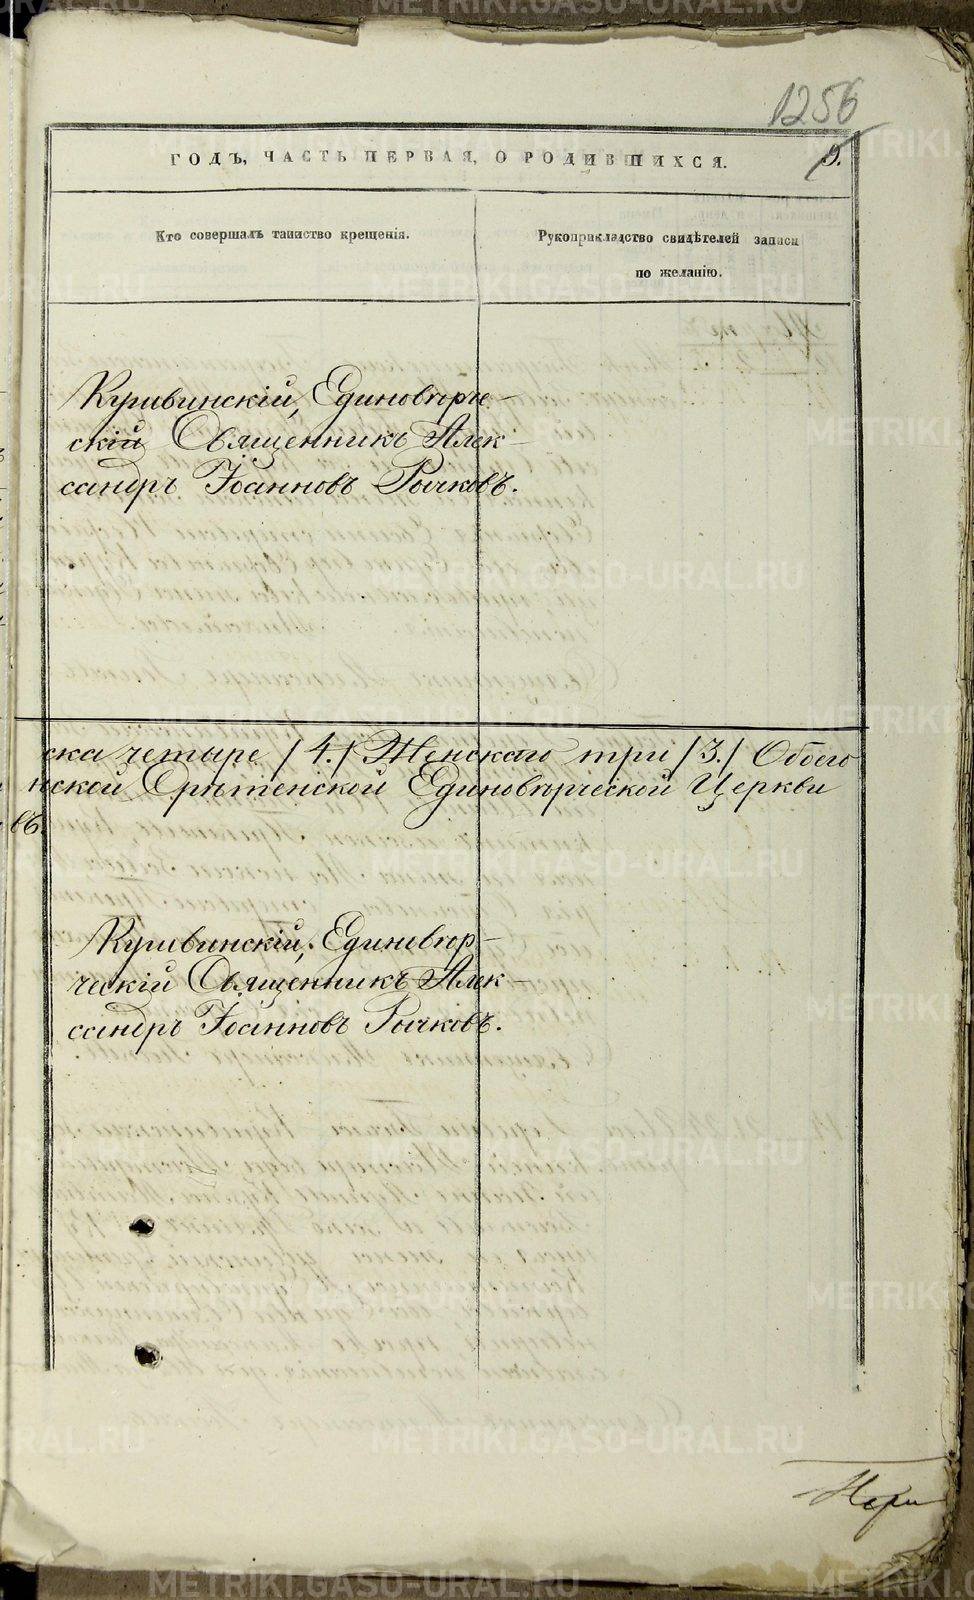 1256
ГОДЪ, ЧАСТЬ ПЕРВАЯ, О РОДИВШИХСЯ.
9.
Кто совершалъ таинство крещенія.
Рукоприкладство свидѣтелей записи
по желанію.
Кушвинскій, Единовѣрче-
скій Священникъ Алек-
сандръ Іоанновъ Рычковъ.
ска четыре /4./ Женскаго три /3./ Обоего
нской Срѣтенской Единовѣрческой Церкви
въ.
Кушвинскій, Единовѣр-
ческій Священникъ Алек-
сандръ Іоанновъ Рычковъ.
METRIKI.GASO-URAL.RU